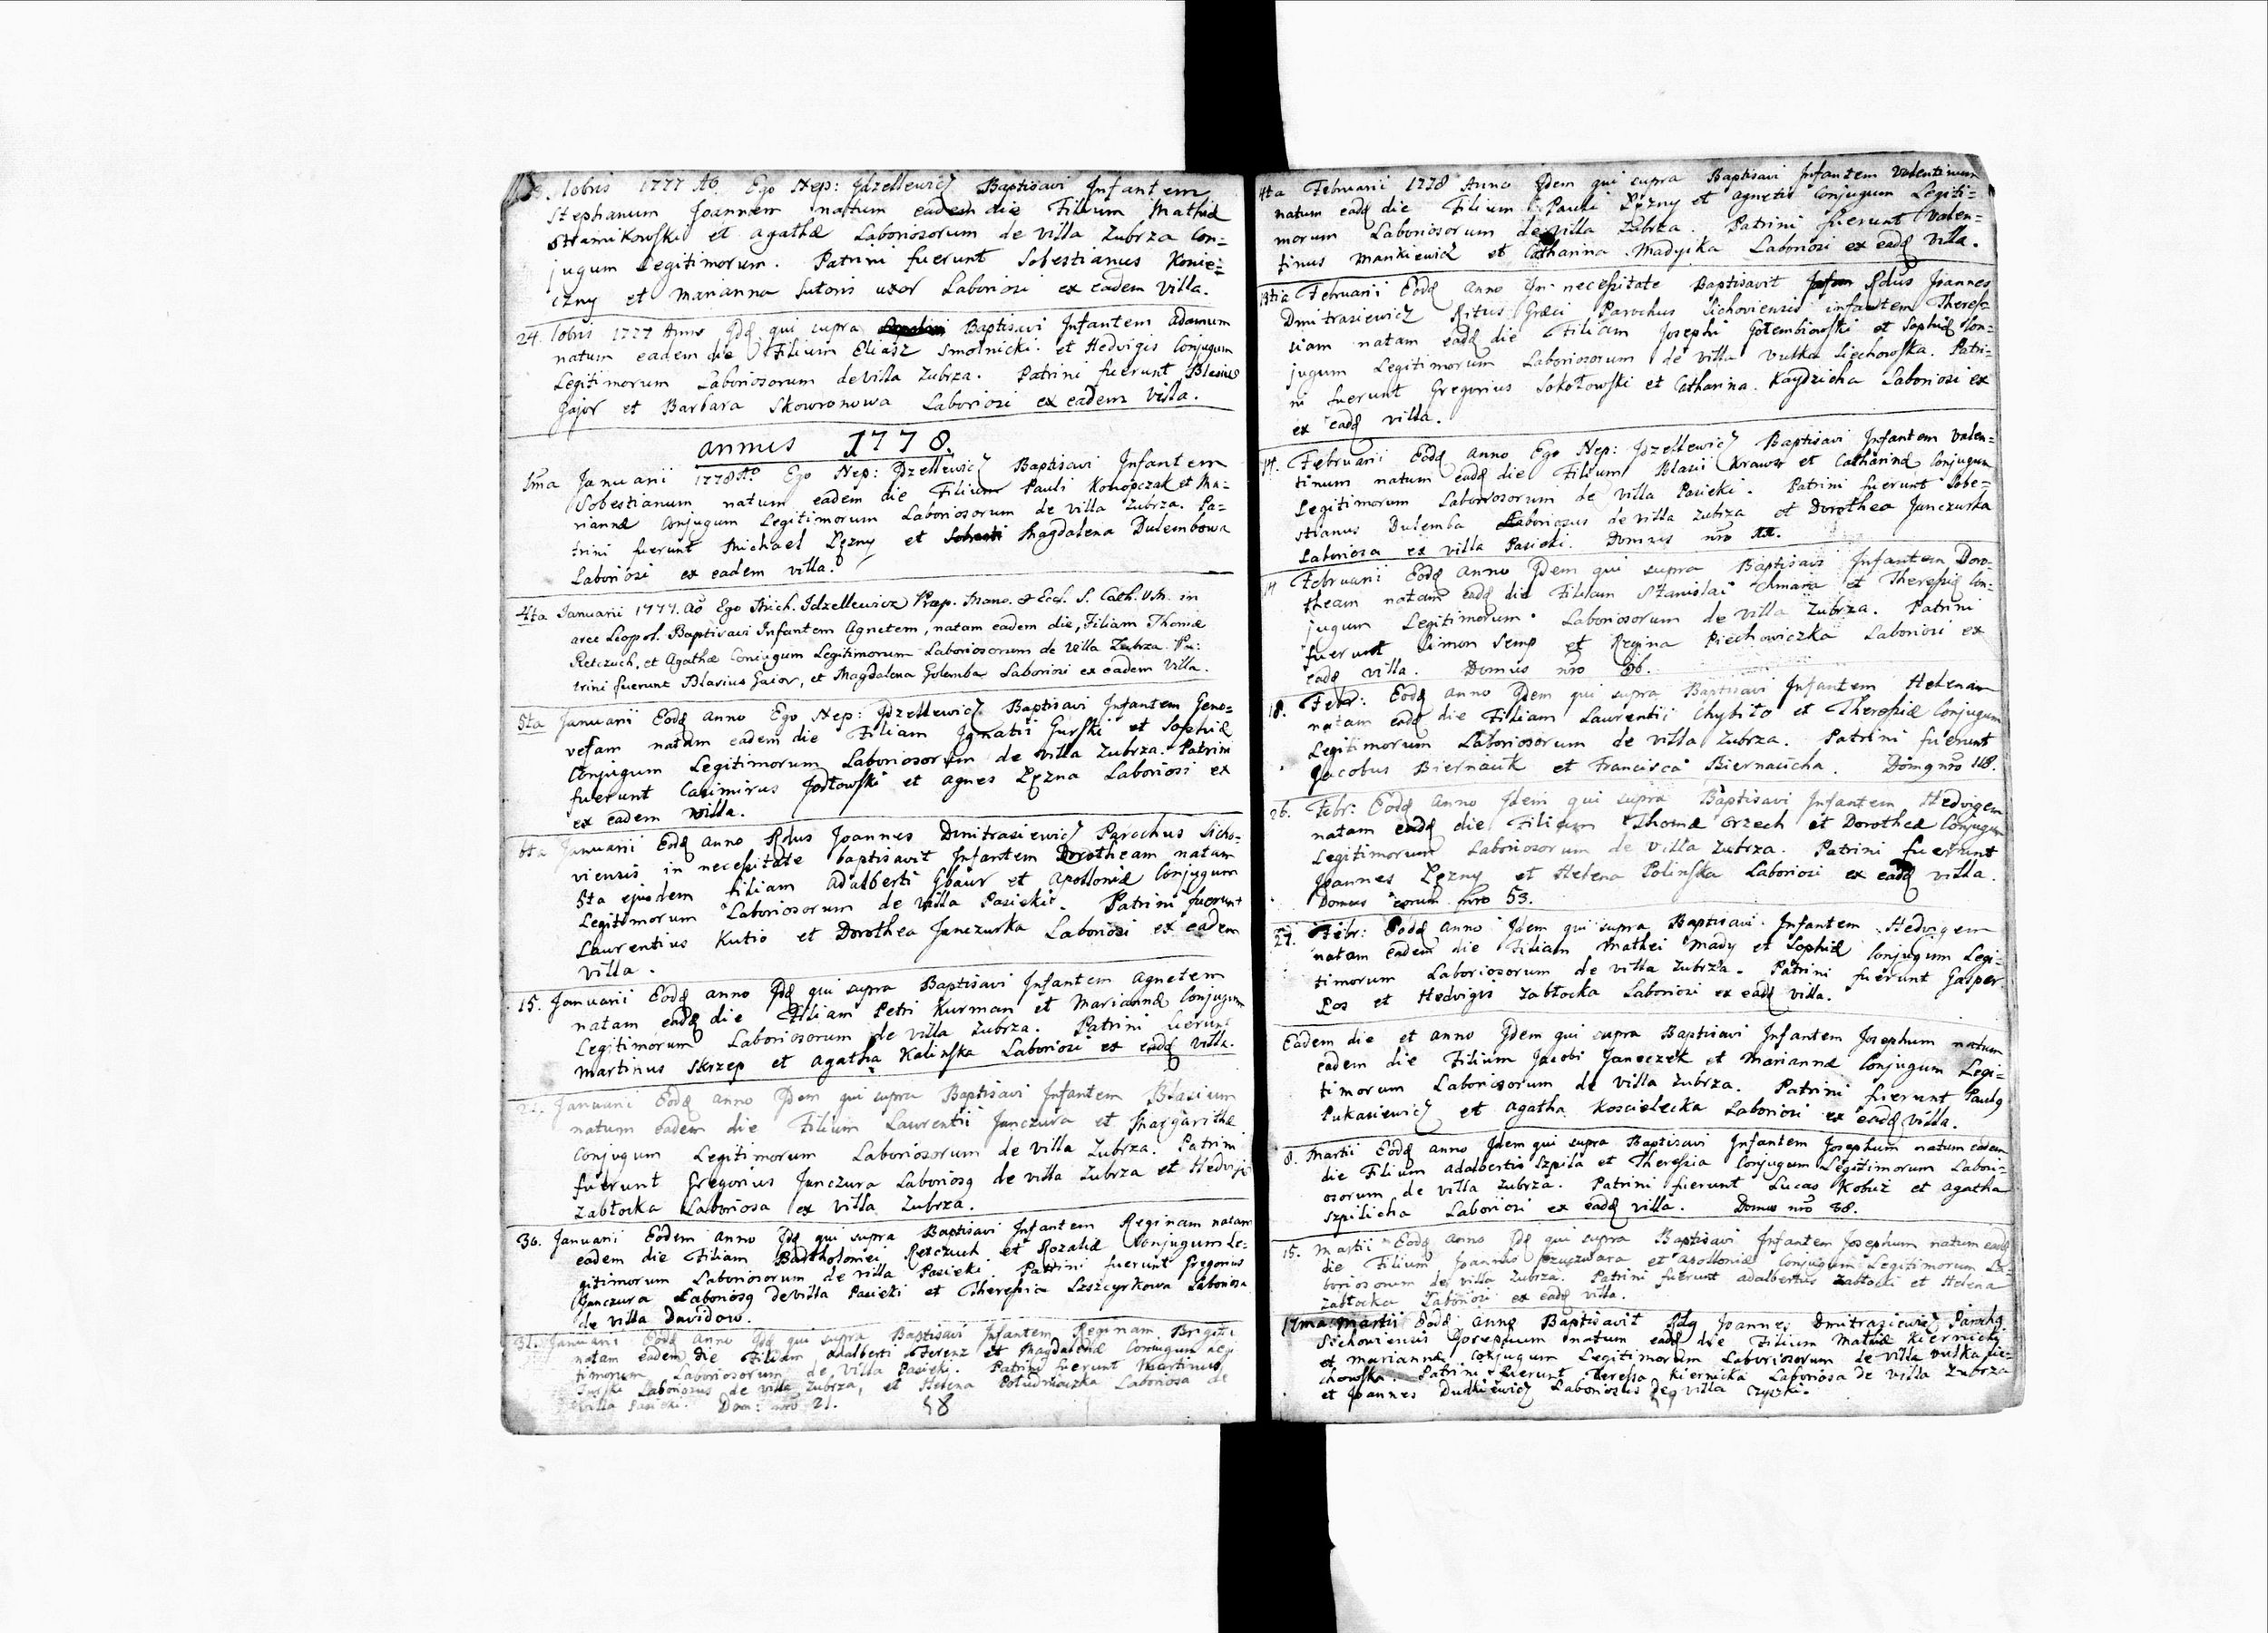 Xbris 1777 Ao. Ego Nep: Jdzellewicz Baptisavi Infantem
Stephanum Joannem natum eadem die Filium Mathiæ
et Agathæ Laboriosorum de villa Zubrza Con=
jugum Legitimorum. Patrini fuerunt Sobestianus Konie=
czny et Marianna Sutoris uxor Laboriosi ex eadem villa.
24. Xbris 1777 Anno Jdē qui supra Baptisavi Infantem Adamum
natum eadem die Filium Eliasz Smolnicki et Hedvigis Conjugum
Legitimorum Laboriosorum de villa Zubrza. Patrini fuerunt Blasius
Gajor et Barbara Skowronowa Laboriosi ex eadem villa.
annus 1778.
1ma Januarii 1778 Ao Ego Nep: Jdzellewicz Baptisavi Infantem
Sobestianum natum eadem die Filium Pauli Konopczak et Ma=
riannæ Conjugum Legitimorum Laboriosorum de villa Zubrza. Pa=
trini fuerunt Michael Lęzny et Magdalena Dulembowa
Laboriosi ex eadem villa.
4ta Januarii Ao Ego Mich. Idzellewicz Præp. Mans. & Eccl. S. Cath. V.M. in
arce Leopol. Baptisavi Infantem Agnetem, natam eadem die, Filiam Thomæ
Retczuch, et Agathæ Conjugum Legitimorum Laboriosorum de Villa Zubrza. Pa:
trini fuerunt Blasius Gaior, et Magdalena Golemba Laboriosi ex eadem Villa.
5ta Januarii Eodē anno Ego Nep: Jdzellewicz Baptisavi Infantem Geno=
vefam natam eadem die Filiam Ignatii Gurski et Sophiæ
Conjugum Legitimorum Laboriosorum de villa Zubrza. Patrini
fuerunt Casimirus Jodłowski et Agnes Lęzna Laboriosi ex
ex eadem villa.
6ta Januarii Eodē anno Rdus Joannes Dmitrasiewicz Parochus Sicho=
viensis in necessitate baptisavit Infantem Dorotheam natam
5ta ejusdem filiam Adalberti Gbaur et Apolloniæ Conjugum
Legitimorum Laboriosorum de villa Pasieki. Patrini fuerunt
Laurentius Kutio et Dorothea Janczurka Laboriosi ex eadem
villa.
15. Januarii Eodē anno Jdē qui supra Baptisavi Infantem Agnetem
natam eadē die Filiam Petri Kurman et Mariannæ Conjugum
Legitimorum Laboriosorum de villa Zubrza. Patrini fuerunt
Martinus Skrzep et Agatha Kalinska Laboriosi ex eadē villa.
Januarii Eodē anno Jdem qui supra Baptisavi Infantem Blasium
natum eadem die Filium Laurentii Janczura et Margarithæ
Conjugum Legitimorum Laboriosorum de villa Zubrza. Patrini
fuerunt Gregorius Janczura Laboriosq de villa Zubrza et Hedvigis
Zabłocka Laboriosa ex villa Zubrza.
30. Januarii Eodem anno Jdē qui supra Baptisavi Infantem Reginam natam
eadem die Filiam Bartholomei Retczuch et Rozaliæ Conjugum Le=
gitimorum Laboriosorum de villa Pasieki. Patrini fuerunt Gregorius
Janczura Laboriosq de villa Pasieki et Theresia Leszczyrkowa Laboriosa
de villa Davidow.
31. Januarii Eodē anno Jdē qui supra Baptisavi Infantem Reginam
natam eadem die Filiam Adalberti Ferenz et Magdalenæ Conjugum
timorum Laboriosorum de villa Pasieki. Patrini fuerunt Martinus
Gurski Laboriosus de villa Zubrza, et Helena Laboriosa de
villa Pasieki. Dom: nro 21.
58
4ta Februarii 1778 Anno Jdem qui supra Baptisavi Infantem Valentinum
natum eadē die Filium Pauli Lęzny et Agnetis Conjugum Legiti=
morum Laboriosorum de villa Zubrza. Patrini fuerunt Valen=
tinus Mankiewicz et Catharina Madyika Laboriosi ex eadē villa.
13tia Februarii Eodē anno In necessitate Baptisavit Rdus Joannes
Dmitrasiewicz Ritus Græci Parochus Sichoviensis infantem There=
siam natam eadē die Filiam Josephi Gołembiowski et Sophiæ Con=
jugum Legitimorum Laboriosorum de villa Vulka Siechowska. Patri=
ni fuerunt Gregorius Sokołowski et Catharina Kaydzicha Laboriosi ex
ex eadē villa.
14. Februarii Eodē anno Ego Nep: Jdzellewicz Baptisavi Infantem Valen=
tinum natum eadē die Filium Blasii Krawsz et Catharinæ Conjugum
Legitimorum Laboriosorum de villa Pasieki. Patrini fuerunt Sobe=
stianus Dulemba Laboriosus de villa Zubrza et Dorothea Janczurka
Laboriosa ex villa Pasieki. Domus nro
Februarii Eodē anno Jdem qui supra Baptisavi Infantem Doro=
theam natam eadē die Filiam Stanislai et Theresiæ Con=
jugum Legitimorum Laboriosorum de villa Zubrza. Patrini
fuerunt Simon Semp et Regina Piechowiczka Laboriosi ex
eadē villa. Domus nro 86.
18. Febr: Eodē anno Jdem qui supra Baptisavi Infantem Helenam
natam eadē die Filiam Laurentii Chybiło et Theresiæ Conjugum
Legitimorum Laboriosorum de villa Zubrza. Patrini fuerunt
Jacobus Biernacik et Francisca Biernacicha. Domq nro 118.
26. Febr: Eodē anno Jdem qui supra Baptisavi Infantem Hedvigem
natam eadē die Filiam Thomæ Orzech et Dorotheæ Conjugum
Legitimorum Laboriosorum de villa Zubrza. Patrini fuerunt
Joannes Lęzny et Helena Polinska Laboriosi ex eadē villa.
Domus eorum nro 53.
27. Febr: Eodē anno Jdem qui supra Baptisavi Infantem Hedvigem
natam eadem die Filiam Mathei Mady et Sophiæ Conjugum Legi=
timorum Laboriosorum de villa Zubrza. Patrini fuerunt Gasper
Los et Hedvigis Zabłocka Laboriosi ex eadē villa.
Eadem die et anno Jdem qui supra Baptisavi Infantem Josephum natum
eadem die Filium Jacobi Janeczek et Mariannæ Conjugum Legi=
timorum Laboriosorum de villa Zubrza. Patrini fuerunt Paulq
Łukasiewicz et Agatha Koscielecka Laboriosi ex eadē villa.
8. Martii Eodē anno Jdem qui supra Baptisavi Infantem Josephum natum eadem
die Filium Adalberti Szpila et Theresia Conjugum Legitimorum Labori=
osorum de villa Zubrza. Patrini fuerunt Lucas Kobuz et Agatha
Szpilicha Laboriosi ex eadē villa. Domus nro 38.
15. Martii Eodē anno Jdē qui supra Baptisavi Infantem Josephum natum eadē
die Filium Joannis et Apolloniæ Conjugum Legitimorum La=
boriosorum de villa Zubrza. Patrini fuerunt Adalbertus Zabłocki et Helena
Zabłocka Laboriosi ex eadē villa.
17ma Martii Eodē anno Baptisavit Rdq Joannes Dmitrasiewicz Parochq
Sichoviensis Josephum natum eadē die Filium Mathiæ Kiernicki
et Mariannæ Conjugum Legitimorum Laboriosorum de villa Vulka Sie=
chowska. Patrini fuerunt Theressa Kiernicka Laboriosa de villa Zubrza
et Joannes Dudkiewicz Laboriosus de villa Czyszki.